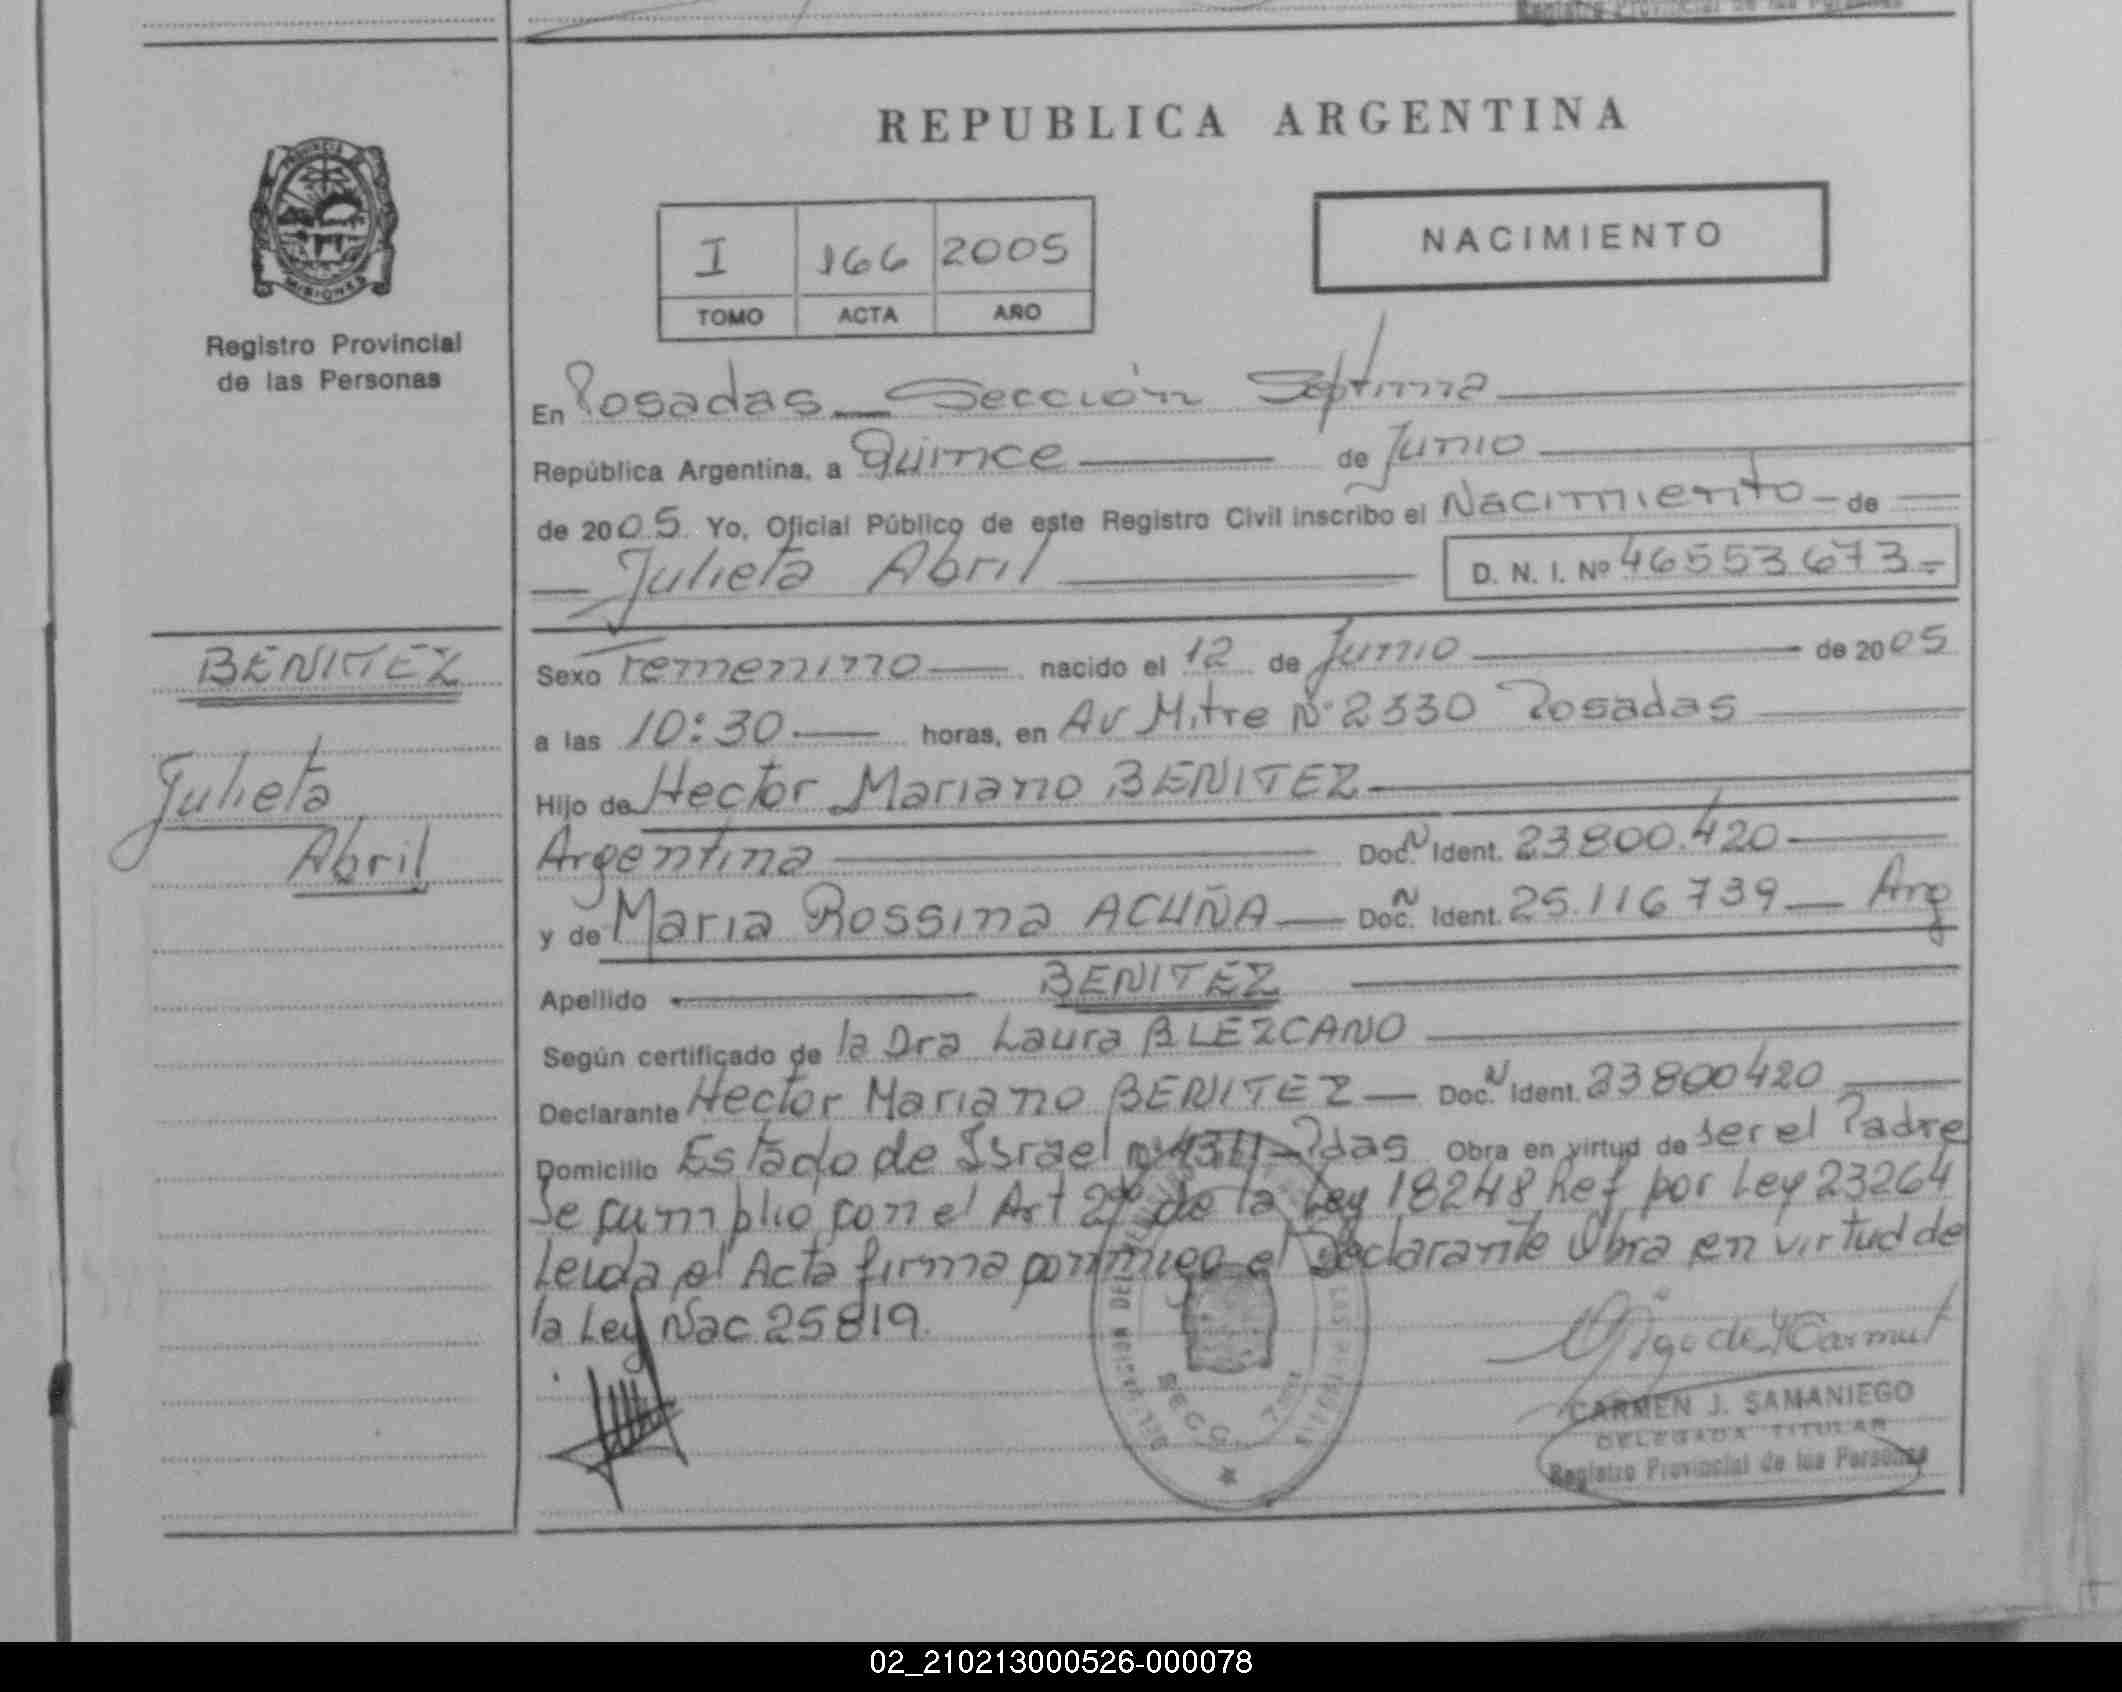 Registro Provincial de las Personas
REPUBLICA ARGENTINA
PROVINCIA DE
MISIONES
Registro Provincial
de las Personas
I 166 2005
TOMO ACTA AÑO
NACIMIENTO
En Posadas — Sección Septima
República Argentina, a Quince de Junio
de 2005. Yo, Oficial Público de este Registro Civil inscribo el Nacimiento — de
Julieta Abril
D. N. I. Nº 46553673.-
BENITEZ
Julieta
Abril
Sexo Femenino nacido el 12 de Junio de 2005
a las 10:30 horas, en Av Mitre Nº 2330 Posadas
Hijo de Hector Mariano BENITEZ
Argentina Doc. N Ident. 23.800.420
y de Maria Rossina ACUÑA — Doc. N Ident. 25.116 739 — Arg
Apellido BENITEZ
Según certificado de la Dra Laura B LEZCANO
Declarante Hector Mariano BENITEZ — Doc. N Ident. 23800420
Domicilio Estado de Israel Pdas Obra en virtud de ser el Padre
Se cumplio con el Art 2º de la Ley 18248 Ref por Ley 23264
Leida el Acta firma conmigo el Declarante Obra en virtud de
la Ley Nac 25819.
SECC. 7ma
CARMEN J. SAMANIEGO
DELEGADA TITULAR
Registro Provincial de las Personas
02_210213000526-000078